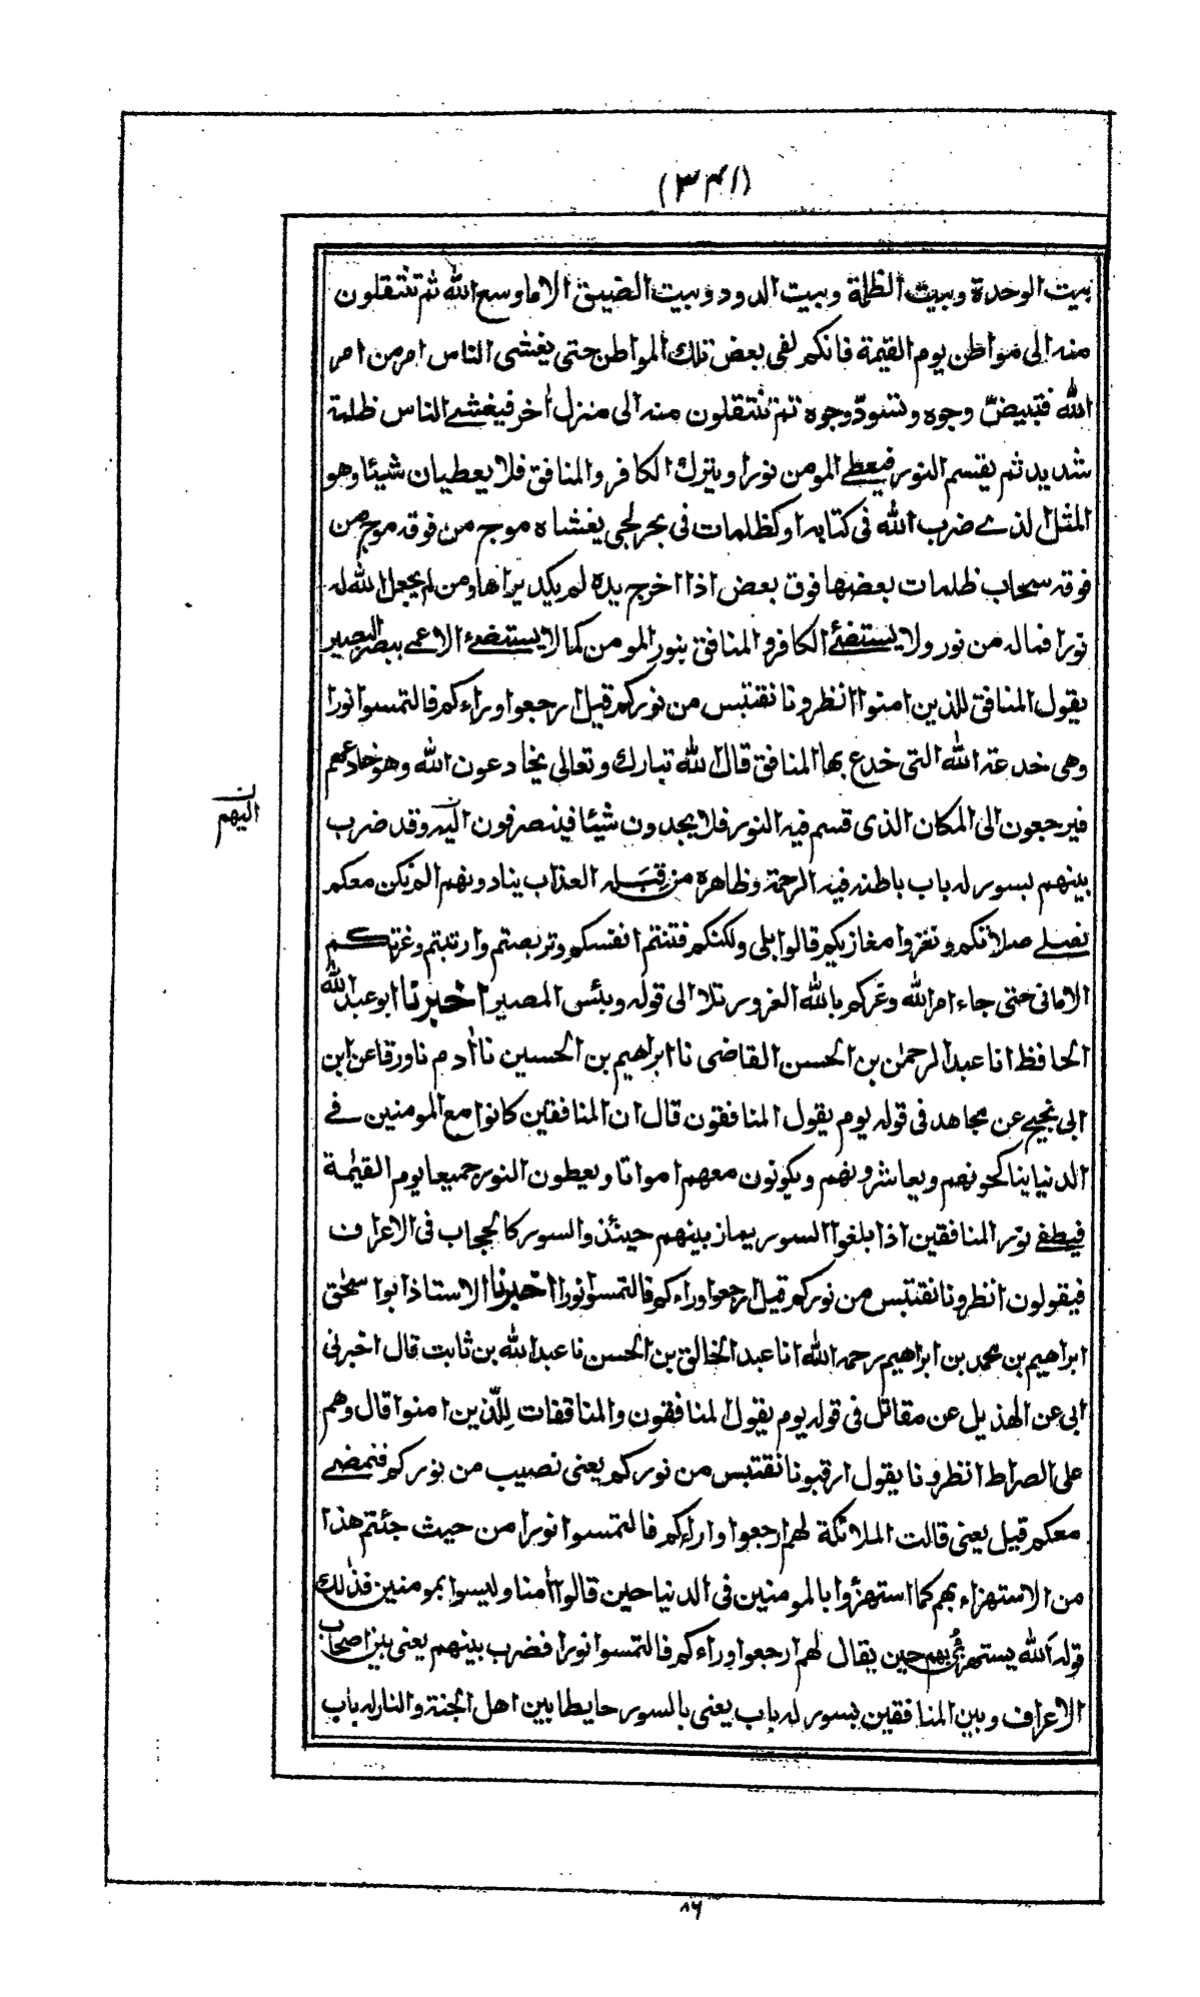 (٣٤١)
بيت الوحدة وبيت الظلمة وبيت الدود وبيت الضيق الا ما وسع الله ثم تنتقلون
منه الى مواطن يوم القيمة فانكم لفى بعض تلك المواطن حتى يغشى الناس امر من امر
الله فتبيضّ وجوه وتسودّ وجوه ثم تنتقلون منه الى منزل أخر فيغشى الناس ظلمة
شديد ثم يقسم النور فيعطى المومن نورا ويترك الكافر والمنافق فلا يعطيان شيئا وهو
المثل الذي ضرب الله فى كتابه او كظلمات فى بحر لجى يغشاه موج من فوقه موج من
فوقه سحاب ظلمات بعضها فوق بعض اذا اخرج يده لم يكد يراها ومن لم يجعل الله له
نورا فماله من نور ولا يستضئ الكافر والمنافق بنور المومن كما لا يستضئ الاعمى ببصر البصير
يقول المنافق للذين امنوا انظرونا نقتبس من نوركم قيل ارجعوا وراءكم فالتمسوا نورا
وهى خدعة الله التى خدع بها المنافق قال الله تبارك وتعالى يخادعون الله وهو خادعهم
فيرجعون الى المكان الذى قسم فيه النور فلا يجدون شيئا فينصرفون اليه وقد ضرب
اليهم
بينهم بسور له باب باطنه فيه الرحمة وظاهره من قبله العذاب ينادونهم الم نكن معكم
نصلى صلاتكم ونغزوا مغازيكم قالوا بلى ولكنكم فتنتم انفسكم وتربصتم وارتبتم وغرتكم
الامانى حتى جاء امر الله وغركم بالله الغرور تلا الى قوله وبئس المصير اخبرنا ابو عبد الله
الحافظ انا عبد الرحمن بن الحسن القاضى نا ابراهيم بن الحسين نا أدم نا ورقا عن ابن
ابى نجيح عن مجاهد فى قوله يوم يقول المنافقون قال ان المنافقين كانوا مع المومنين في
الدنيا يناكحونهم ويعاشرونهم ويكونون معهم امواتا ويعطون النور جميعا يوم القيمة
فيطفى نور المنافقين اذا بلغوا السور يماز بينهم حينئذ والسور كالحجاب فى الاعراف
فيقولون انظرونا نقتبس من نوركم قيل ارجعوا وراءكم فالتمسوا نورا اخبرنا الاستاذ ابو اسحق
ابراهيم بن محمد بن ابراهيم رحمه الله انا عبد الخالق بن الحسن نا عبد الله بن ثابت قال اخبرنى
ابى عن الهذيل عن مقاتل فى قوله يوم يقول المنافقون والمنافقات للّذين امنوا قال وهم
على الصراط انظرونا يقول ارقبونا نقتبس من نوركم يعنى نصيب من نوركم فنمضى
معكم قيل يعنى قالت الملائكة لهم ارجعوا وراءكم فالتمسوا نورا من حيث جئتم هذا
من الاستهزاء بهم كما استهزؤا بالمومنين فى الدنيا حين قالوا أمنا وليسوا بمومنين فذلك
قوله الله يستهزئ بهم حين يقال لهم ارجعوا وراءكم فالتمسوا نورا فضرب بينهم يعنى بين اصحاب
الاعراف وبين المنافقين بسور له باب يعنى بالسور حايطا بين اهل الجنة والنار له باب
٨٦